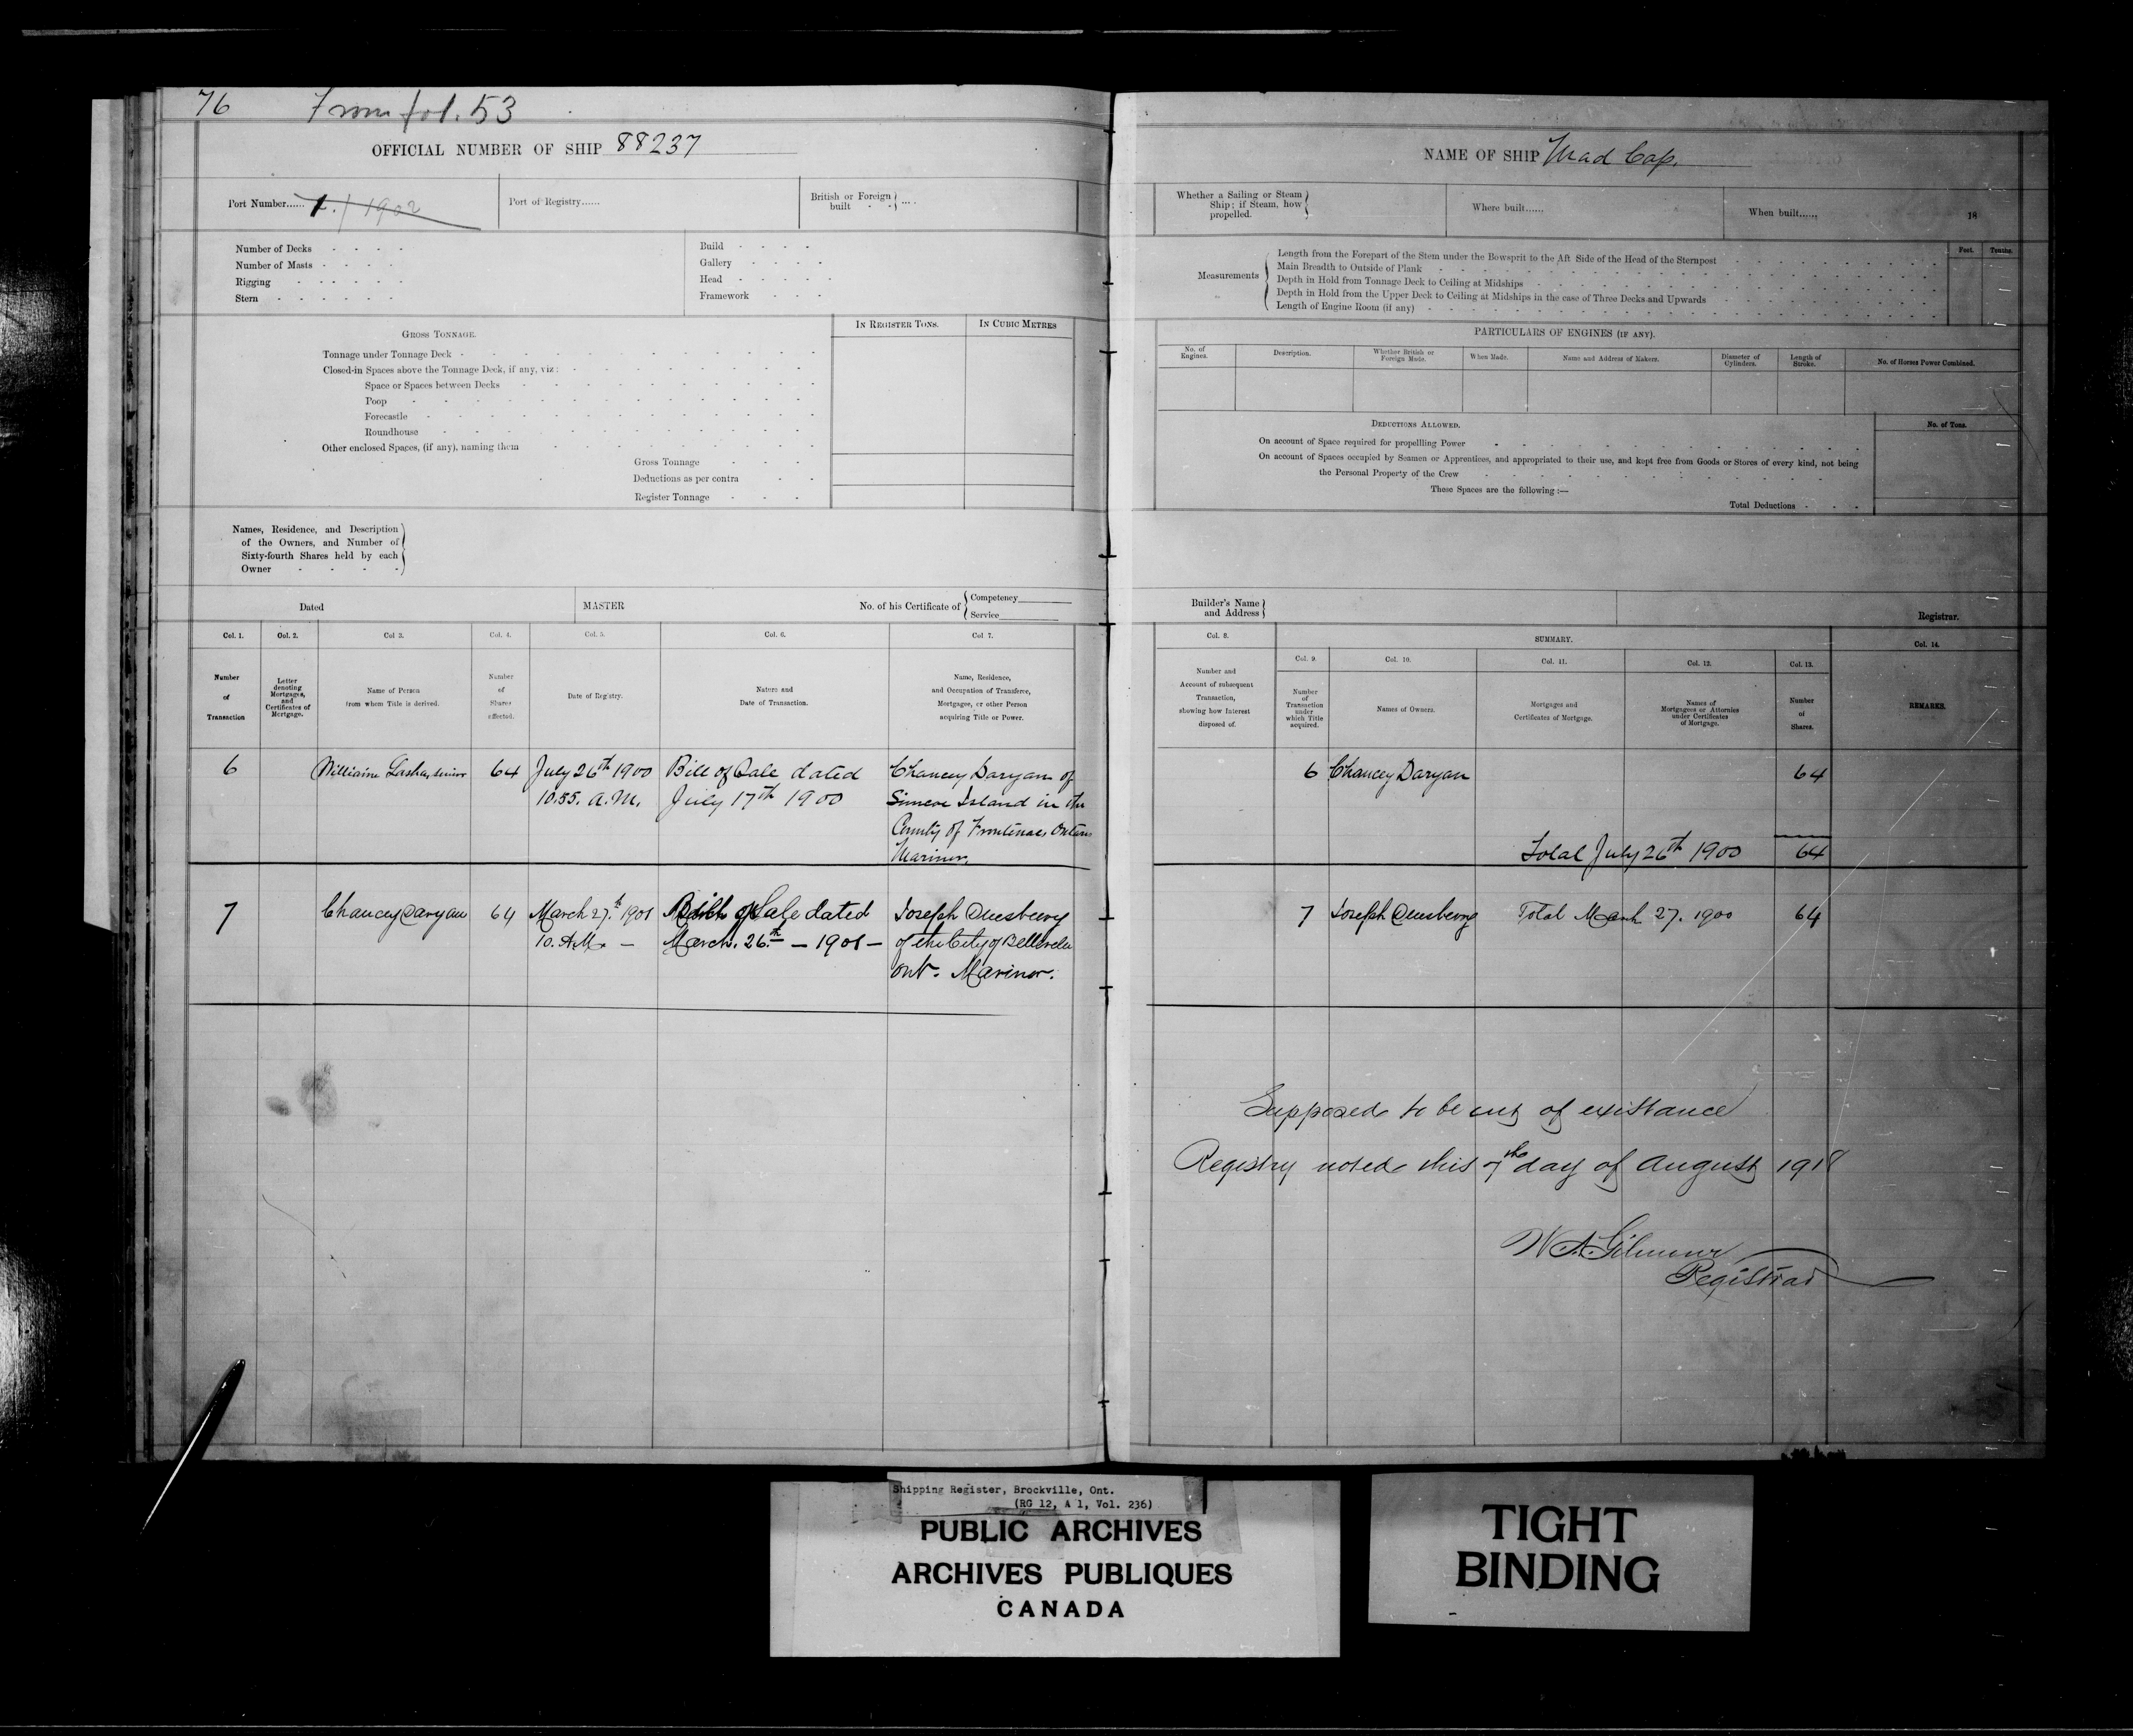 76 From fol. 53
OFFICIAL NUMBER OF SHIP 88237
Port Number...... 1./1902
Port of Registry......
British or Foreign
built - - ....
Number of Decks - - - -
Number of Masts - - - -
Rigging - - - - - -
Stern - - - - - -
Build - - - -
Gallery - - - -
Head - - - -
Framework - - -
IN REGISTER TONS. IN CUBIC METRES
GROSS TONNAGE.
Tonnage under Tonnage Deck -
Closed-in Spaces above the Tonnage Deck, if any, viz :
Space or Spaces between Decks
Poop
Forecastle
Roundhouse
Other enclosed Spaces, (if any), naming them
Gross Tonnage - - -
Deductions as per contra - -
Register Tonnage - - -
Names, Residence, and Description
of the Owners, and Number of
Sixty-fourth Shares held by each
Owner - - - -
Dated MASTER No. of his Certificate of Competency
Service
Col. 1. Col. 2. Col 3. Col. 4. Col. 5. Col. 6. Col 7.
Number
of
Transaction
Letter
denoting
Mortgages,
and
Certificates of
Mortgage.
Name of Person
from whom Title is derived.
Number
of
Shares
affected.
Date of Registry.
Nature and
Date of Transaction.
Name, Residence,
and Occupation of Transferee,
Mortgagee, or other Person
acquiring Title or Power.
6 William Lasha, senior 64 July 26th 1900 Bill of Sale dated Chancey Daryan of
10.55. A.M. July 17th 1900 Simcoe Island in the
County of Frontenac Ontario
Mariner.
7 Chancey Daryau 64 March 27.th 1901 of Sale dated Joseph
10. A.M. — March. 26.th — 1901 — of the City of Belleville
Ont. Marinor.
NAME OF SHIP Mad Cap.
Whether a Sailing or Steam
Ship; if Steam, how
propelled.
Where built......
When built...... 18
Feet. Tenths.
Measurements
Length from the Forepart of the Stem under the Bowsprit to the Aft Side of the Head of the Sternpost
Main Breadth to Outside of Plank
Depth in Hold from Tonnage Deck to Ceiling at Midships
Depth in Hold from the Upper Deck to Ceiling at Midships in the case of Three Decks and Upwards
Length of Engine Room (if any)
PARTICULARS OF ENGINES (IF ANY).
No. of
Engines.
Description.
Whether British or
Foreign Made.
When Made.
Name and Address of Makers.
Diameter of
Cylinders.
Length of
Stroke.
No. of Horses Power Combined.
DEDUCTIONS ALLOWED. No. of Tons.
On account of Space required for propellling Power
On account of Spaces occupied by Seamen or Apprentices, and appropriated to their use, and kept free from Goods or Stores of every kind, not being
the Personal Property of the Crew
These Spaces are the following :—
Total Deductions - - -
Builder's Name
and Address
Registrar.
Col. 8. SUMMARY. Col. 14.
Col. 9. Col. 10. Col. 11. Col. 12. Col. 13.
Number and
Account of subsequent
Transaction,
showing how Interest
disposed of.
Number
of
Transaction
under
which Title
acquired.
Names of Owners.
Mortgages and
Certificates of Mortgage.
Names of
Mortgagees or Attornies
under Certificates
of Mortgage.
Number
of
Shares.
REMARKS.
6 Chancey Daryan 64
Total July 26th 1900 64
7 Joseph Total March 27. 1900 64
Supposed to be out of existance
Registry noted this 7th day of August 1918
W A Gilmour
Registrar
Shipping Register, Brockville, Ont.
(RG 12, A 1, Vol. 236)
PUBLIC ARCHIVES
ARCHIVES PUBLIQUES
CANADA
TIGHT
BINDING